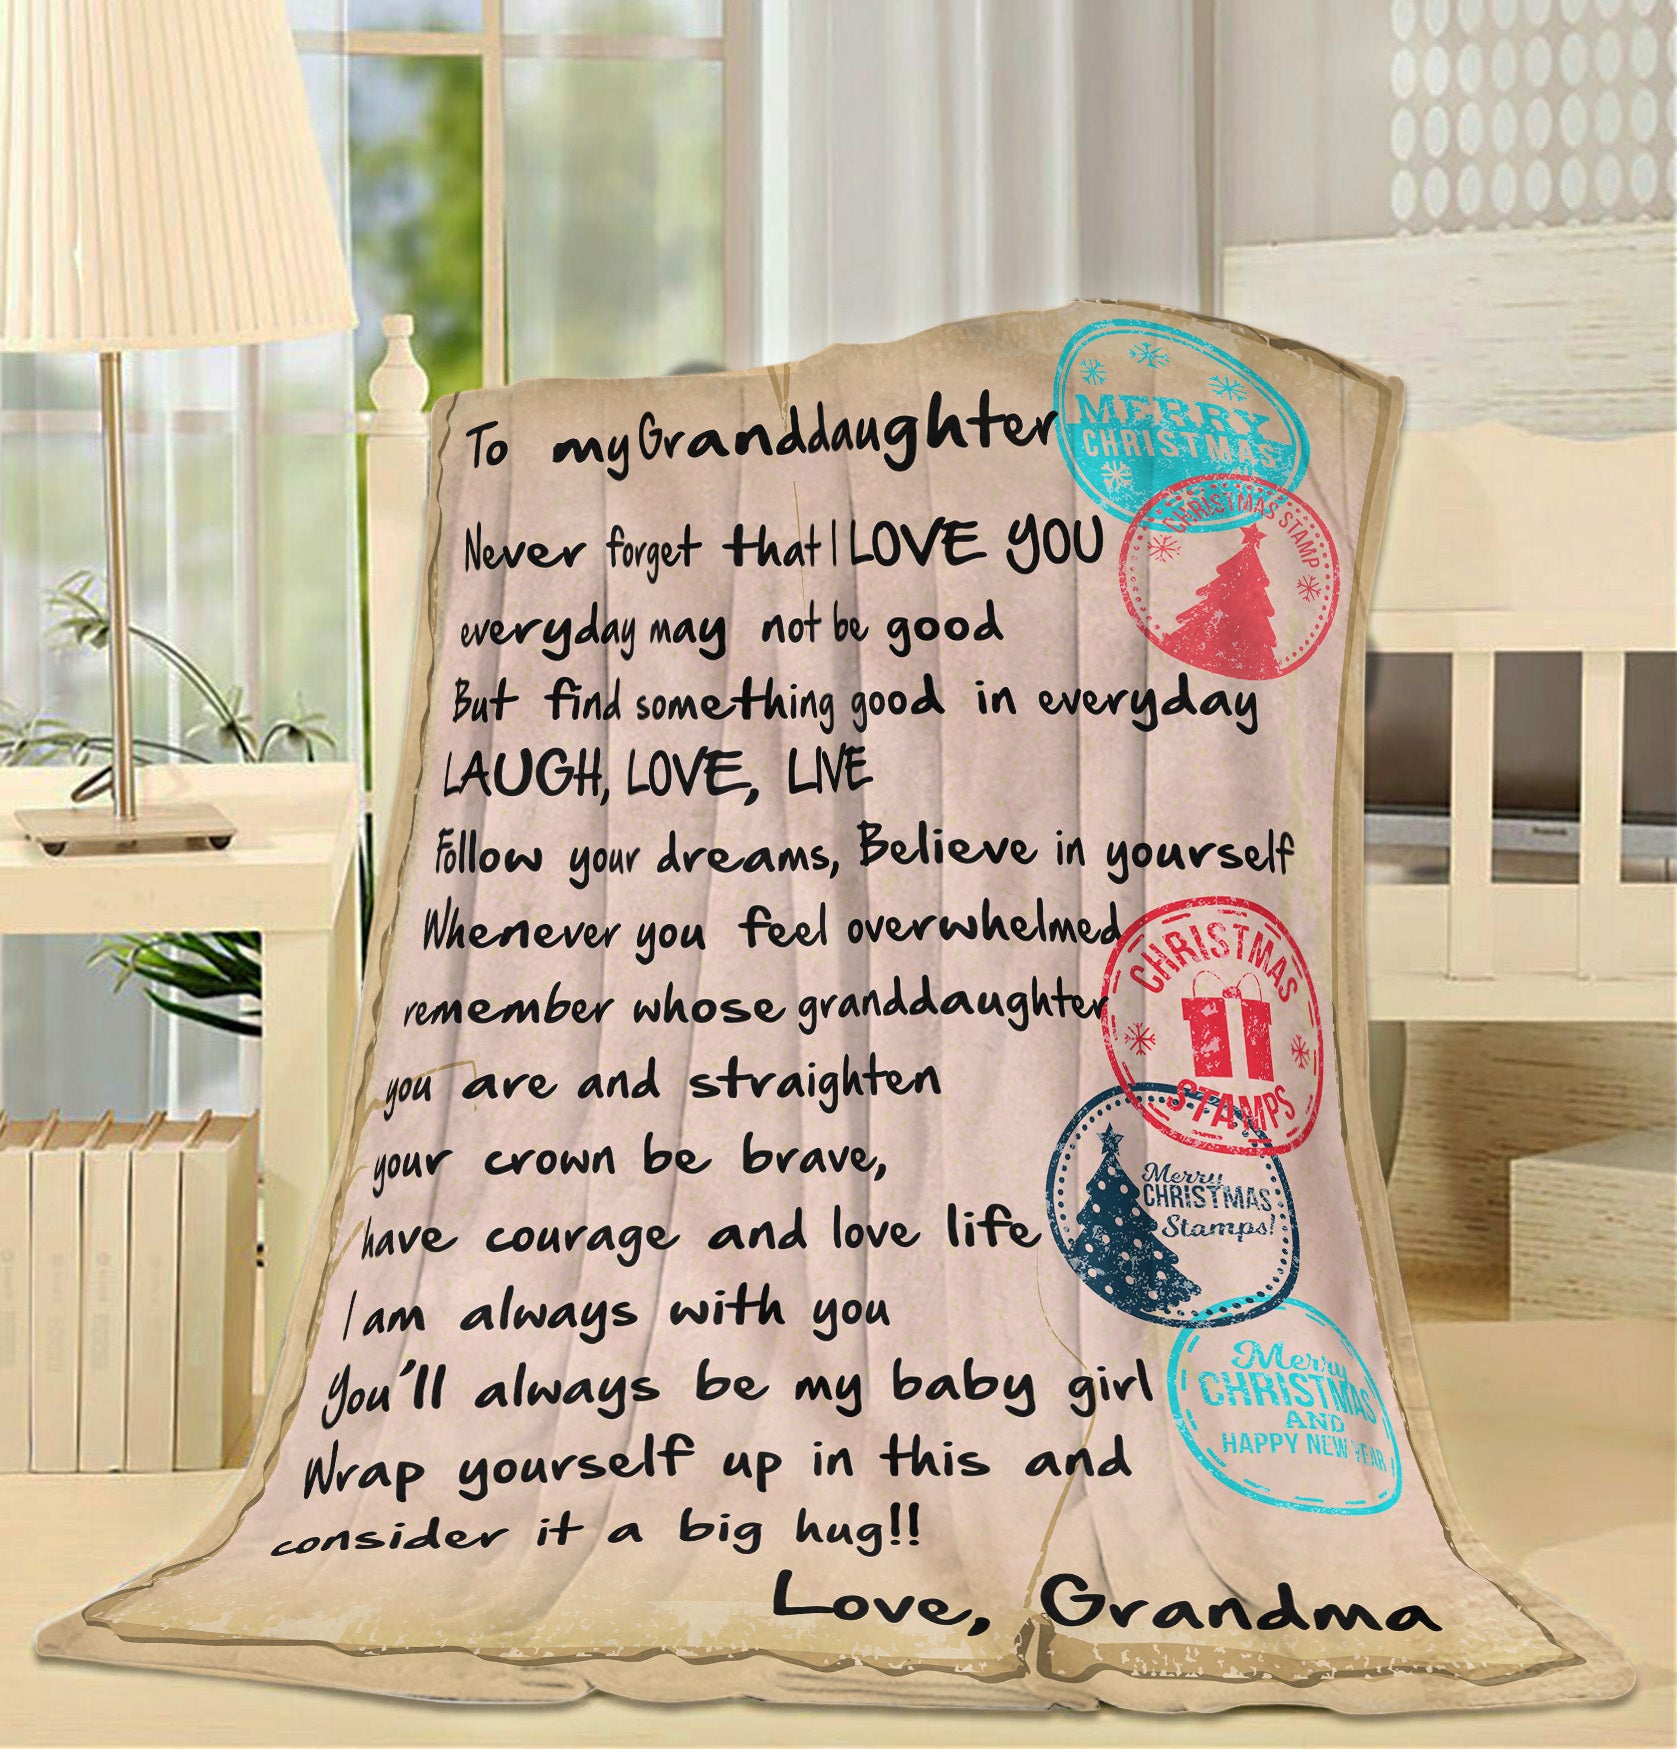 To my Granddaughter
MERRY
CHRISTMAS
CHRISTMAS STAMP
Never forget that I LOVE YOU
everyday may not be good
But find something good in everyday
LAUGH, LOVE, LIVE
Follow your dreams, Believe in yourself
Whenever you feel overwhelmed
CHRISTMAS
STAMPS
remember whose granddaughter
you are and straighten
your crown be brave,
Merry
CHRISTMAS
Stamps!
have courage and love life
I am always with you
You'll always be my baby girl
Merry
CHRISTMAS
AND
HAPPY NEW YEAR
Wrap yourself up in this and
consider it a big hug!!
Love, Grandma